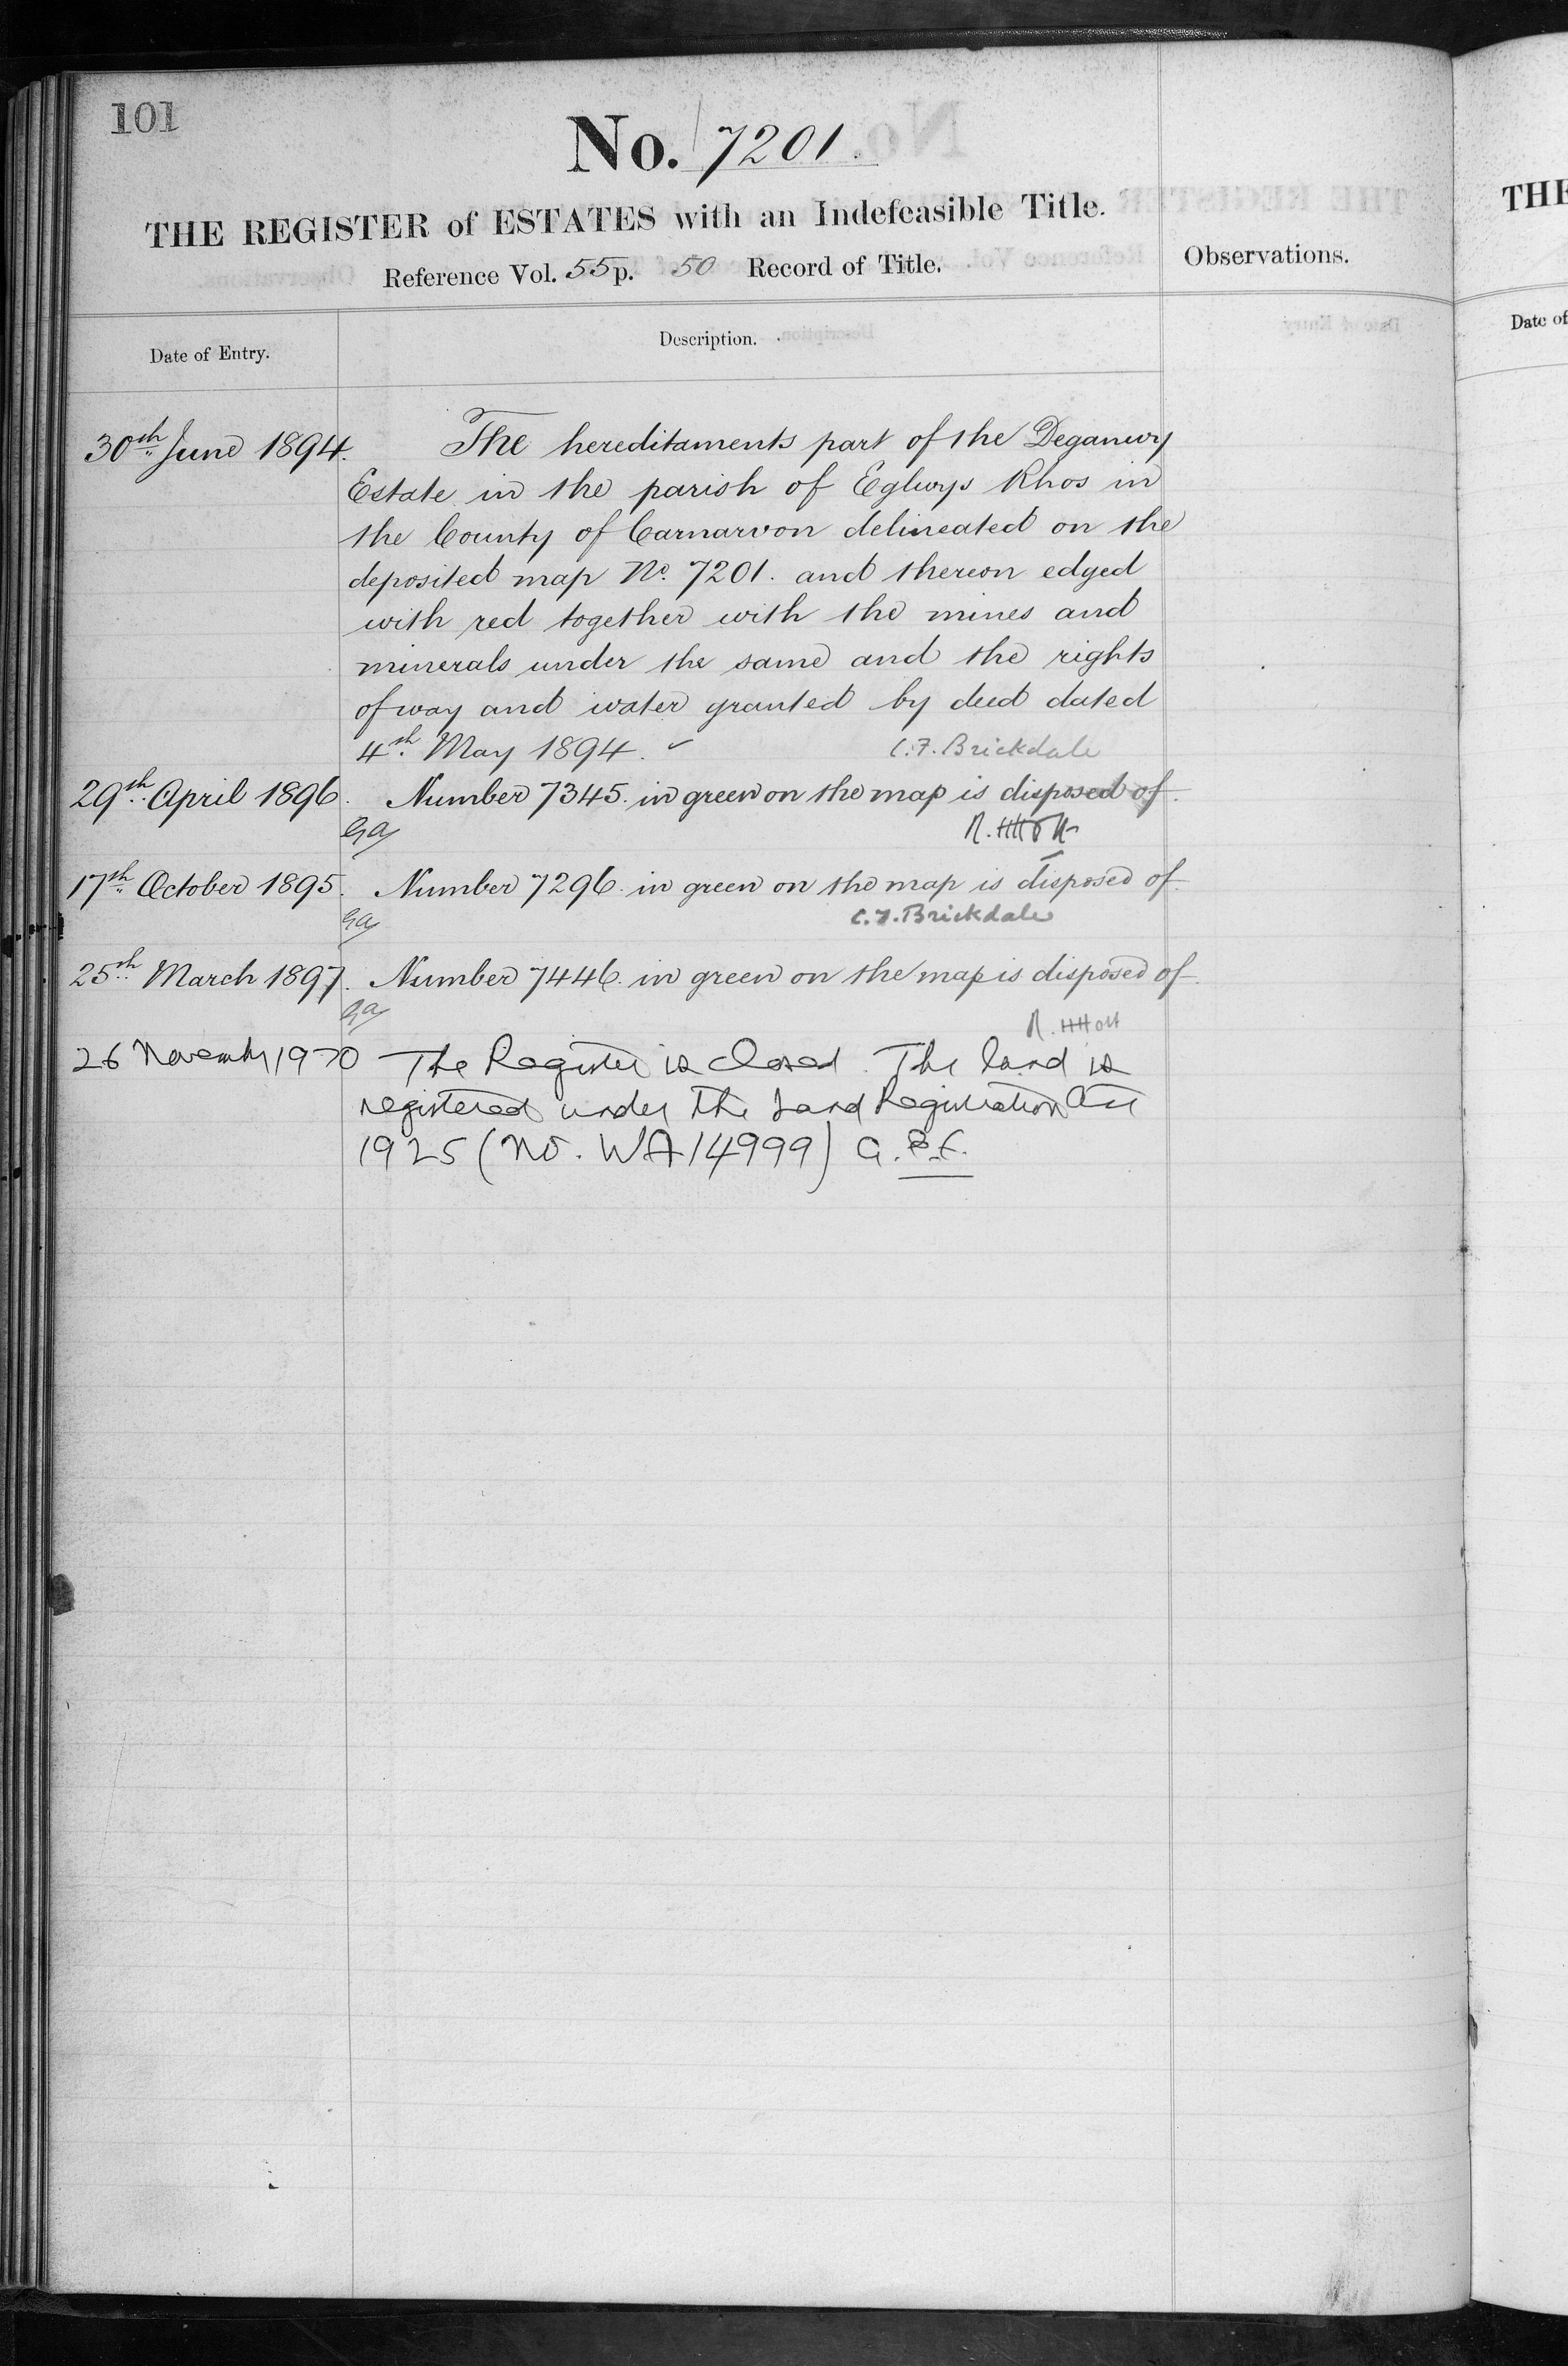 101
No. 7201.
THE REGISTER of ESTATES with an Indefeasible Title.
Reference Vol. 55 p. 50 Record of Title.
Observations.
Date of Entry.
Description.
30th June 1894. The hereditaments part of the Deganwy
Estate in the parish of Eglwys Rhos in
the County of Carnarvon delineated on the
deposited map No. 7201. and thereon edged
with red together with the mines and
minerals under the same and the rights
of way and water granted by deed dated
4th May 1894.
C.F. Brickdale
29th April 1896. Number 7345. in green on the map is disposed of.
17th October 1895. Number 7296. in green on the map is disposed of.
C.F. Brickdale
25th March 1897. Number 7446. in green on the map is disposed of.
26 November 1970 The Register is closed. The land is
registered under the Land Registration Act
1925 (No. WA14999)
THE
Date of